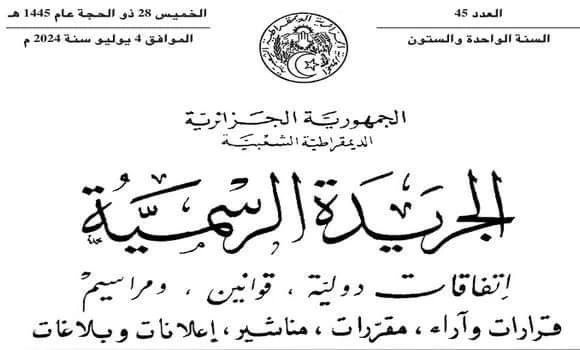 العدد 45
السنة الواحدة والستون
الخميس 28 ذو الحجة عام 1445 هـ
الموافق 4 يوليو سنة 2024 م
الجمهورية الجزائرية
الديمقراطية الشعبية
الجريدة الرسمية
إتفاقات دولية ، قوانين ، ومراسيم
قرارات وآراء ، مقررات ، مناشير ، إعلانات وبلاغات